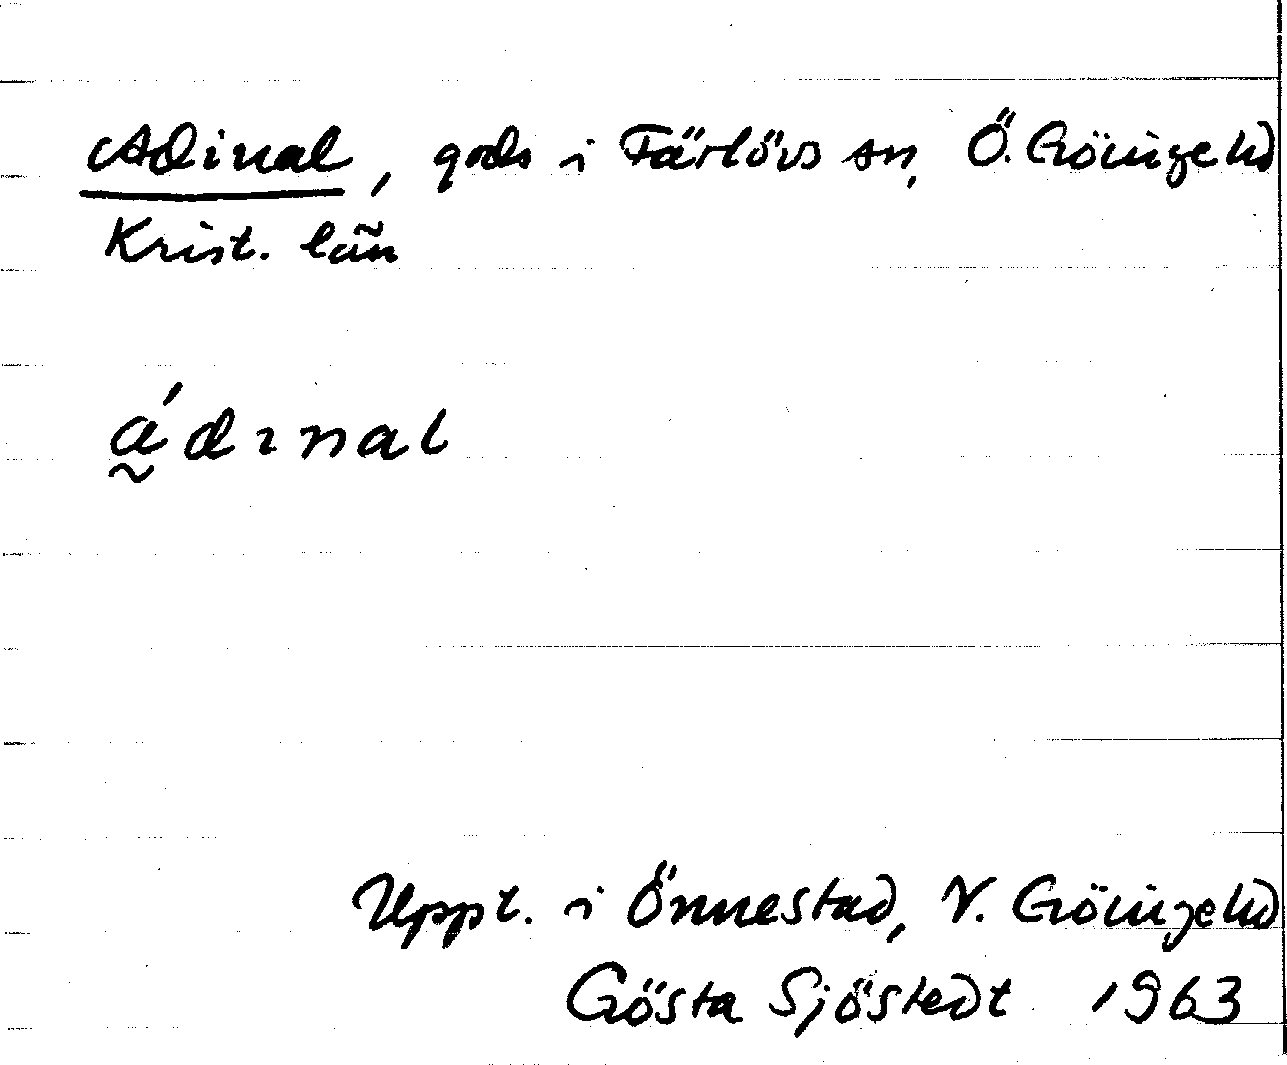 Adinal, gods i Färlövs sn, Ö. Göinge hd
Krist. län
á̰dınal
Uppt. i Önnestad, V. Göinge hd
Gösta Sjöstedt 1963